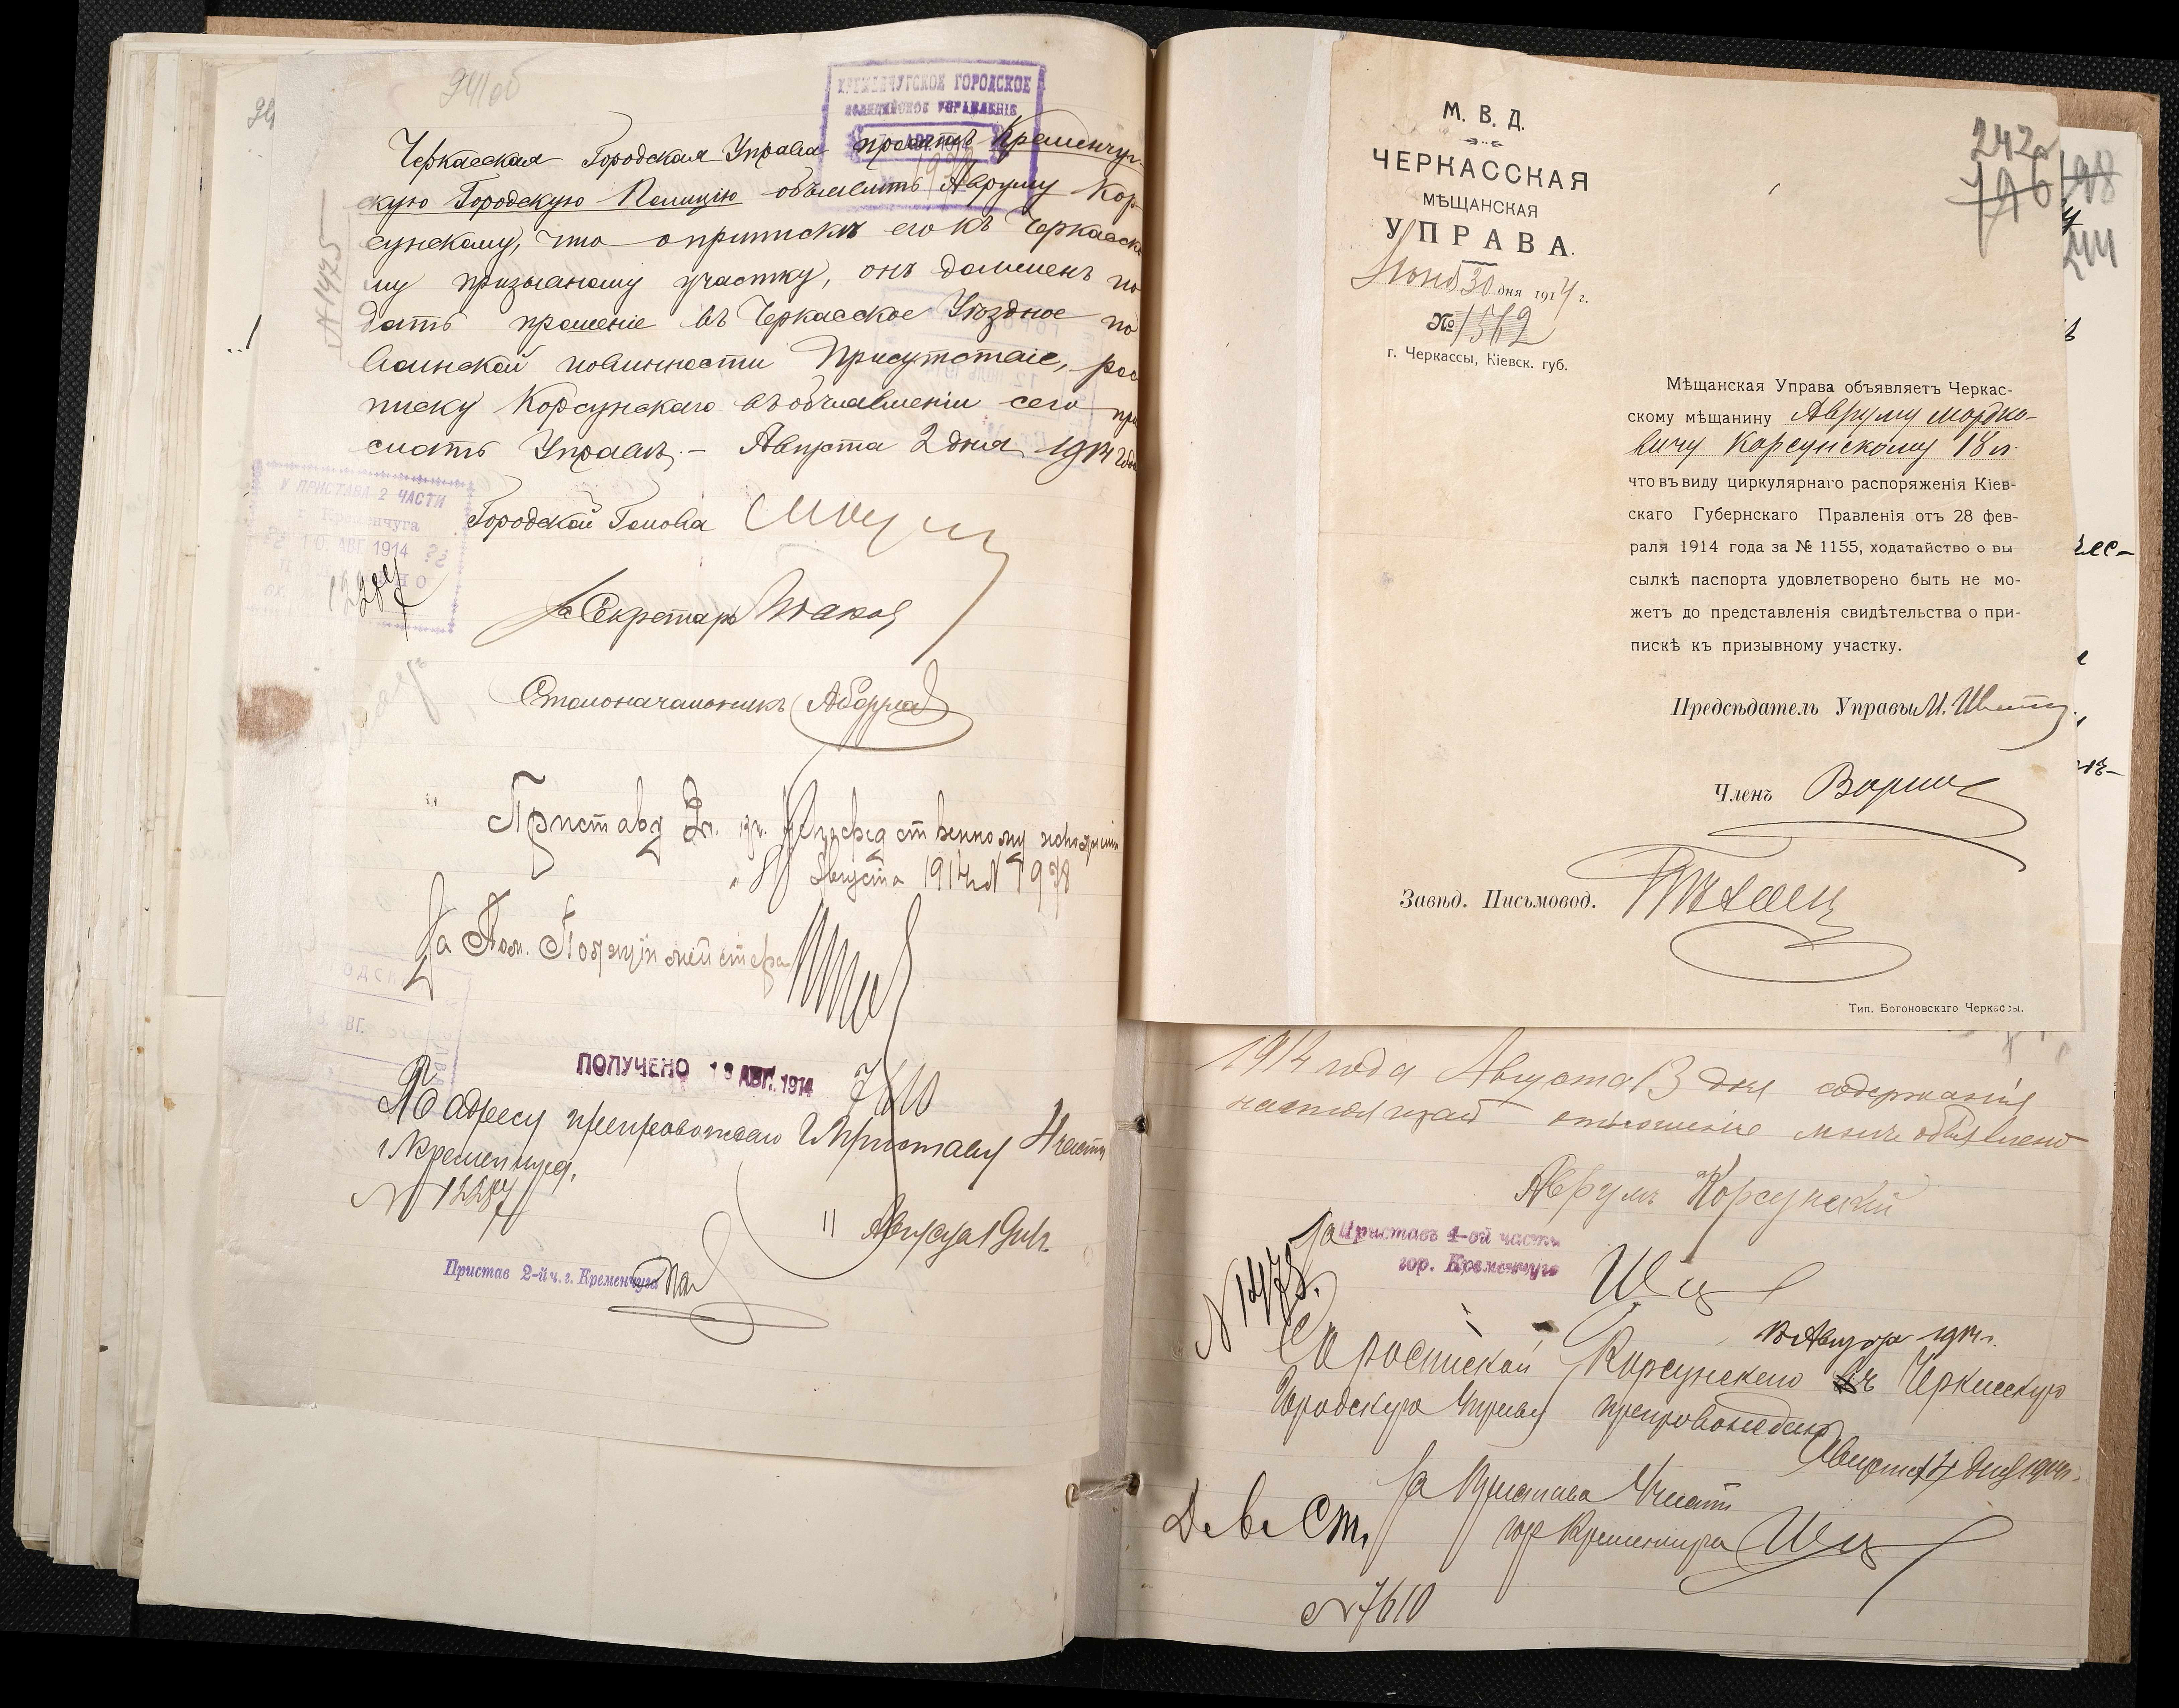 241об
КРЕМЕНЧУГСКОЕ ГОРОДСКОЕ
ПОЛИЦЕЙСКОЕ УПРАВЛЕНІЕ
Черкасская Городская Управа проситъ Кременчуг-
скую Городскую Полицію объявить Авруму Кор-
сунскому, что о припискѣ его къ Черкасско
му призывному участку, онъ долженъ по
дать прошеніе въ Черкасское Уѣздное по
воинской повинности Присутствіе, рос
писку Корсунскаго въ объявленіи сего при
слать Управѣ. — Августа 2 дня 1914 года
№ 1475
Городской Голова
За Секретаря
Столоначальникъ
У ПРИСТАВА 2 ЧАСТИ
г. Кременчуга
10 АВГ. 1914
12287
Приставу 2 ч.
Августа 1914 г. № 1978
За Пом. Полицiймейстера
ПОЛУЧЕНО 13 АВГ. 1914
7610
По адресу препровождаю Приставу 1 части
г. Кременчуга.
№ 12287
11 Августа 1914 г.
Пристав 2-й ч. г. Кременчуга
М. В. Д.
ЧЕРКАССКАЯ
МѢЩАНСКАЯ
УПРАВА.
30 дня 1914 г.
№ 1562
г. Черкассы, Кіевск. губ.
242
796
198
244
Мѣщанская Управа объявляетъ Черкас-
скому мѣщанину Авруму Мордко-
вичу Корсунскому 18 л.
что въ виду циркулярнаго распоряженія Кіев-
скаго Губернскаго Правленія отъ 28 фев-
раля 1914 года за № 1155, ходатайство о вы
сылкѣ паспорта удовлетворено быть не мо-
жетъ до представленія свидѣтельства о при-
пискѣ къ призывному участку.
Предсѣдатель Управы
Членъ
Завѣд. Письмовод.
Тип. Богоновскаго Черкассы.
1914 года Августа 13 дня содержанія
настоящей отношеніе мнѣ объявлено
Аврумъ Корсунскій
За Приставъ 1-ой части
гор. Кременчуга
№ 1478.
13 Августа 1914 г.
Съ роспиской Корсунскаго въ Черкасскую
Городскую Управу препровождаю
Августа 14 дня 1914 г.
За Пристава 1 части
гор Кременчуга
№ 7610